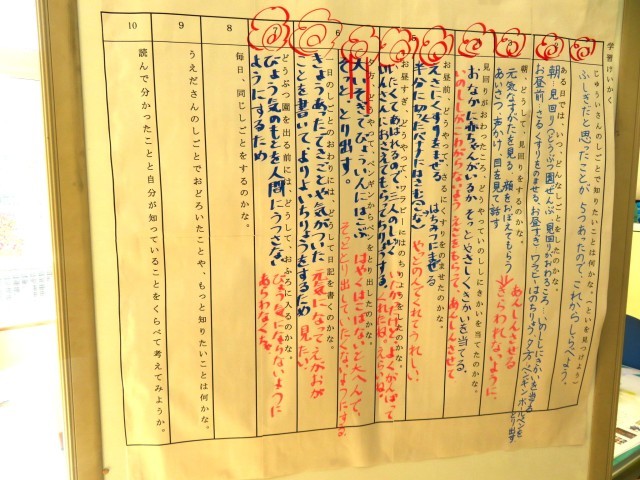 学習けいかく
じゅういさんのしごとで知りたいことは何かな。〈といを見つけよう〉
ふしぎだと思ったことが5つあったので、これからしらべよう。
ある日では、いつ、どんなしごとをしたのかな。
朝…見回り(どうぶつ園ぜんぶ)見回りがおわるころ、いのししにきかいを当てる
お昼前…さるにくすりをのませる。お昼すぎ、ワラビーはのちりょう 夕方 ペンギン ボールペンをとり出す
朝、どうして、見回りをするのかな。
元気なすがたを見る。顔をおぼえてもらう
あいさつ 声かけ、目を見て話す
あんしんさせる
きらわれないように、
見回りがおわったころ、どうやっていのししにきかいを当てたのかな。
おなかに赤ちゃんがいるか そっとやさしくきかいを当てる。
いのししがこわがらないよう えさをもらって、あんしんさせて
お昼前、どうやってさるにくすりをのませたのかな。
えさにくすりをまぜる。はちみつにまぜる
やっとのんでくれてうれしい。
お昼すぎ、どうやって、ワラビーにはのちりょうをしたのかな。
いたくてあばれるので、三人のしいくいんさんにおさえてもらってちりょうする。
夕方、どうやって、ペンギンからペンをとり出したのかな。
大いそぎでびょういんにはこぶ
そっと、とり出す。
はやくはこばないと大へんで、
そっととり出していたくないようにする
一日のしごとのおわりには、どうして日記を書くのかな。
きょうあったできごとや気がついた
ことを書いて よりよいちりょうをするため
元気になってえがおが
見たい。
どうぶつ園を出る前には、どうして、おふろに入るのかな。
びょう気のもとを人間にうつさない
ようにするため
びょう気にならないように
あらわなくちゃ。
8
毎日、同じしごとをするのかな。
9
うえださんのしごとでおどろいたことや、もっと知りたいことは何かな。
10
読んで分かったことと自分が知っていることをくらべて考えてみようか。